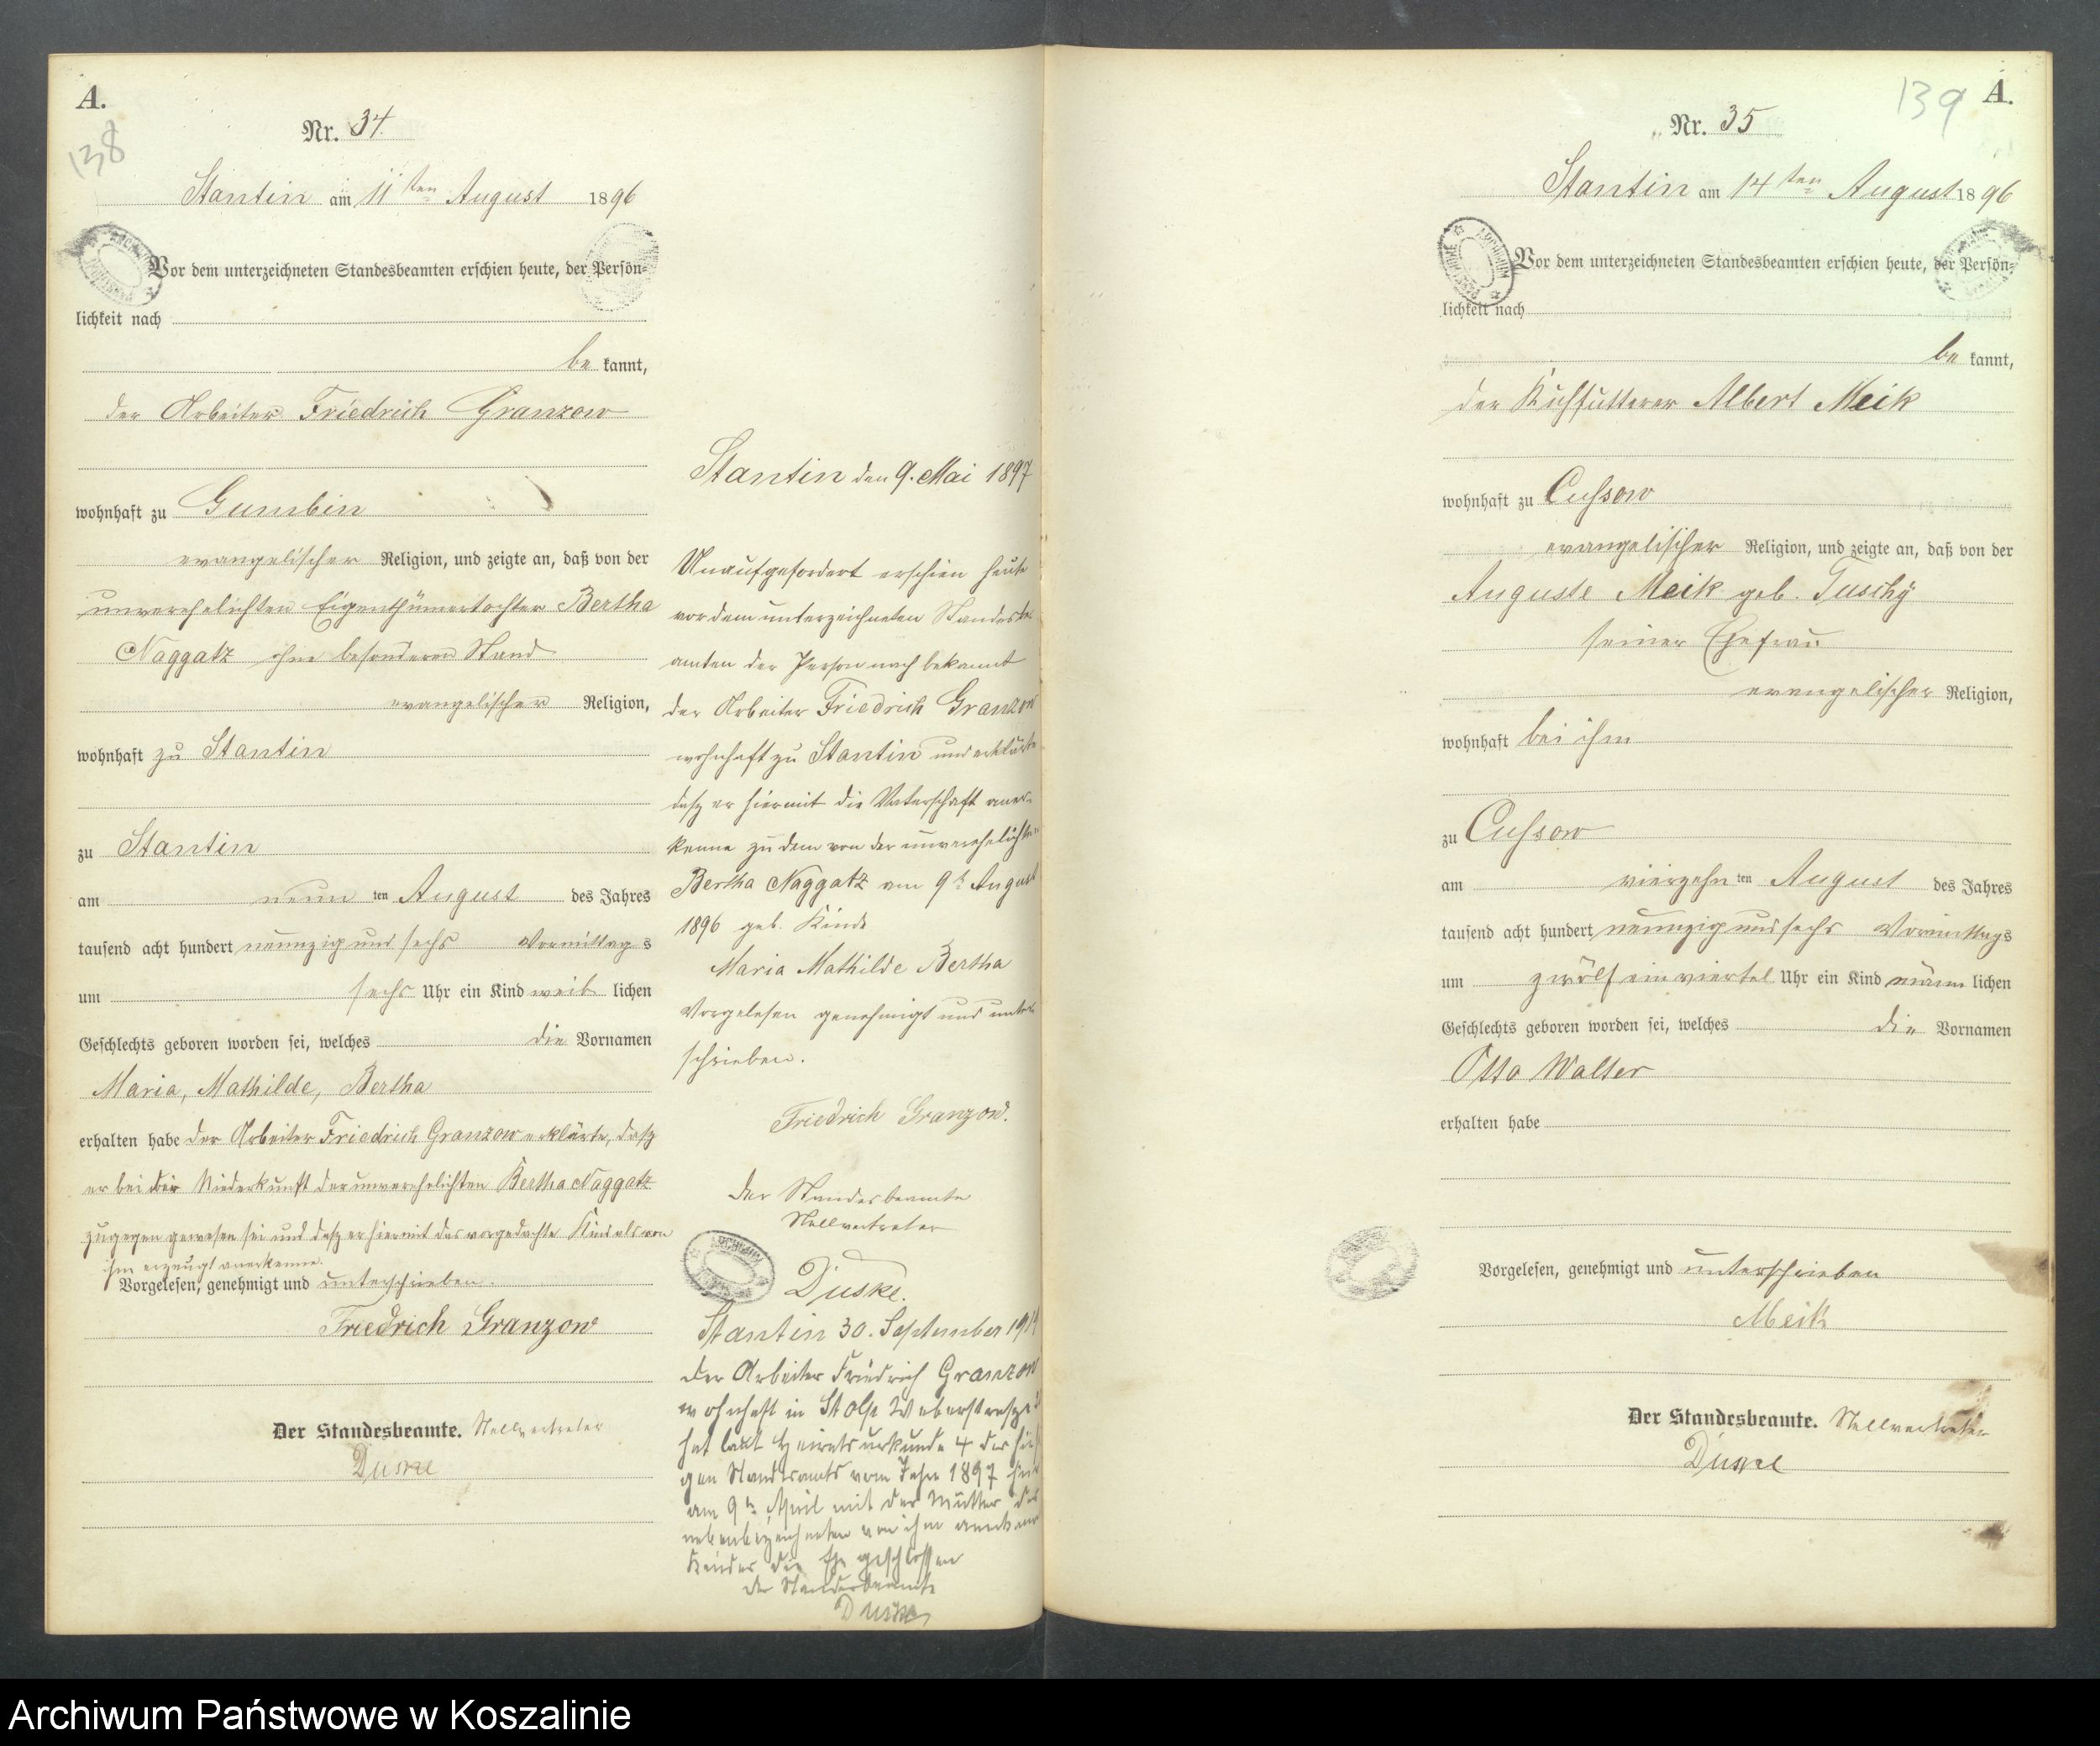 A.
138
Nr. 34.
Stantin am 11ten August 1896
Vor dem unterzeichneten Standesbeamten erschien heute, der Persön-
lichkeit nach
be kannt,
der Arbeiter Friedrich Granzow
wohnhaft zu Gumbin
evangelischer Religion, und zeigte an, daß von der
unverehelichten Eigenthümertochter Bertha
Naggatz ohne besonderen Stand
evangelischer Religion,
wohnhaft zu Stantin
zu Stantin
am neun ten August des Jahres
tausend acht hundert neunzig und sechs Vormittag s
um sechs Uhr ein Kind weib lichen
Geschlechts geboren worden sei, welches die Vornamen
Maria, Mathilde, Bertha
erhalten habe der Arbeiter Friedrich Granzow erklärte, daß
er bei der Niederkunft der unverehelichten Bertha Naggatz
zugegen gewesen sei und daß er hiermit das vorgedachte Kind als von
ihm erzeugt anerkenne.
Vorgelesen, genehmigt und unterschrieben.
Friedrich Granzow
Der Standesbeamte. Stellvertreter
Duske
Stantin den 9. Mai 1897
Unaufgefordert erschien heute
vor dem unterzeichneten Standesbe-
amten der Person nach bekannt
der Arbeiter Friedrich Granzow
wohnhaft zu Stantin und erklärte
daß er hiermit die Vaterschaft aner-
kenne zu dem von der unverehelichten
Bertha Naggatz am 9t August
1896 geb. Kinde
Maria Mathilde Bertha
Vorgelesen genehmigt und unter
schrieben.
Friedrich Granzow.
Der Standesbeamte
Stellvertreter
Duske.
Stantin 30. September
der Arbeiter Friedrich Granzow
wohnhaft in Stolp Weberstraße
hat laut Heiratsurkunde 4 des hiesi
gen Standesamts vom Jahre 1897 hier
am 9ten April mit der Mutter des
nebenbezeichneten von ihm anerkann
Kindes die Ehe geschlossen
der Standesbeamte
Duske
139
A.
Nr. 35
Stantin am 14ten August 1896
Vor dem unterzeichneten Standesbeamten erschien heute, der Persön-
lichkeit nach
be kannt,
der Kuhfutterer Albert Meik
wohnhaft zu Cussow
evangelischer Religion, und zeigte an, daß von der
Auguste Meik geb. Tuschy
seiner Ehefrau
evangelischer Religion,
wohnhaft bei ihm
zu Cussow
am vierzehn ten August des Jahres
tausend acht hundert neunzig und sechs Vormittags
um zwölf ein viertel Uhr ein Kind männ lichen
Geschlechts geboren worden sei, welches die Vornamen
Otto Walter
erhalten habe
Vorgelesen, genehmigt und unterschrieben
Meik
Der Standesbeamte. Stellvertreter
Duske
Archiwum Państwowe w Koszalinie